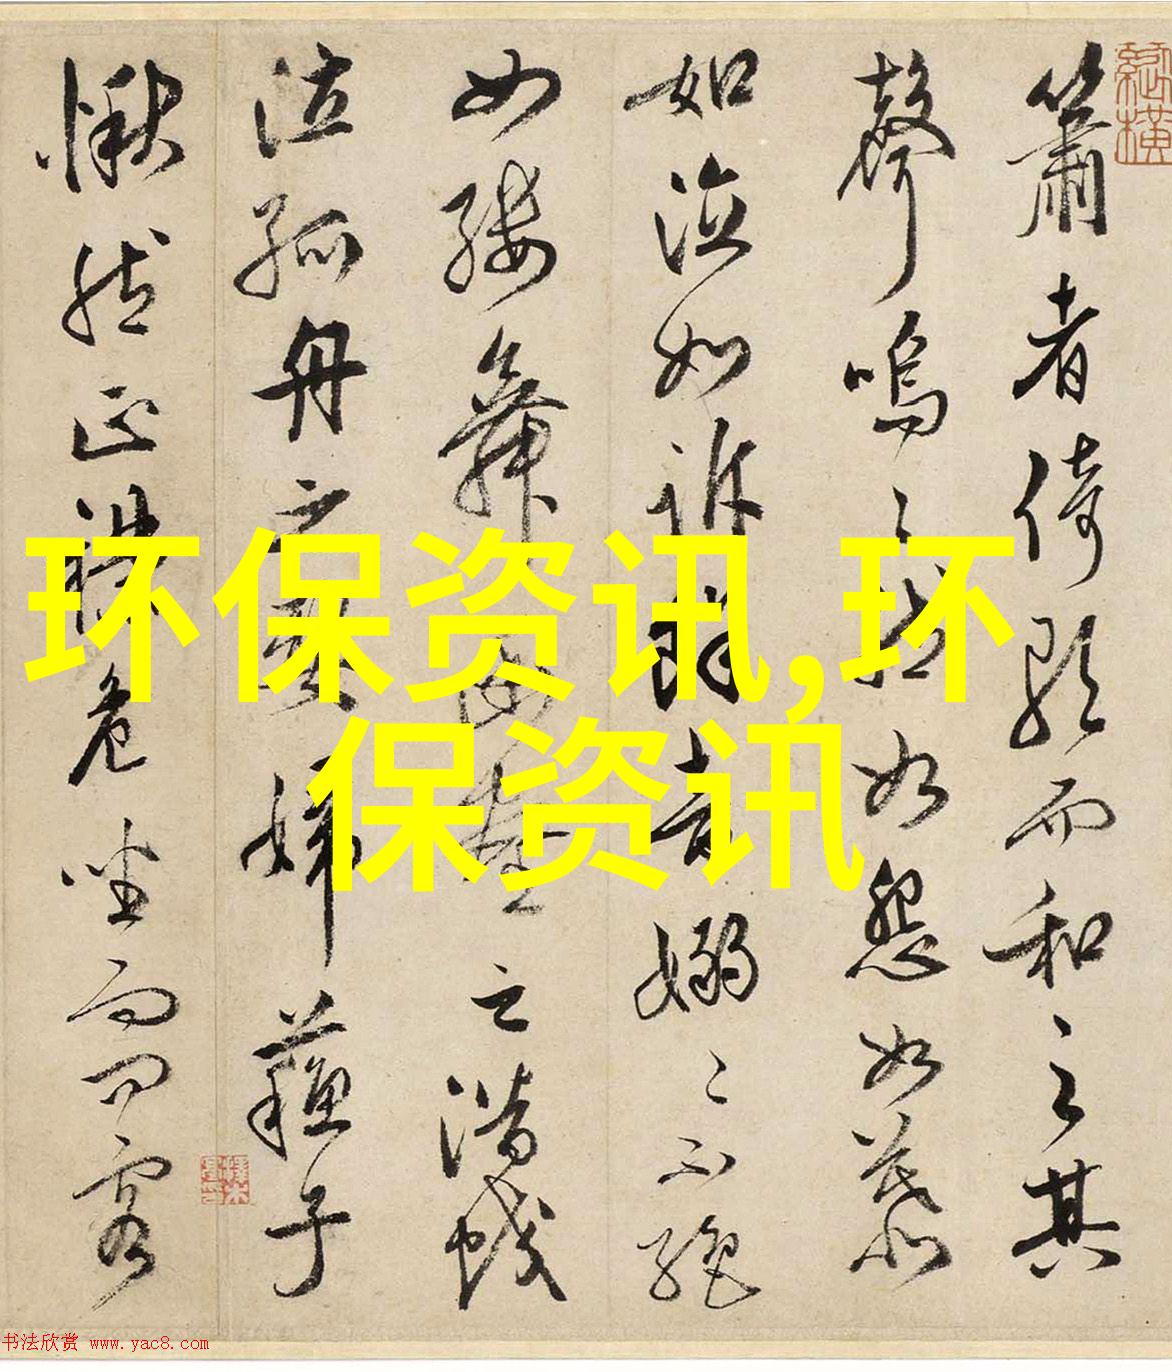 簫者倚歌而和之其
聲嗚〻然如怨如慕
如泣如訴餘音嫋〻不絕
如縷舞幽壑之潛蛟
泣孤舟之嫠婦蘇子
愀然正襟危坐而問客
环保资讯,环
保资讯
书法欣赏 www.yac8.com